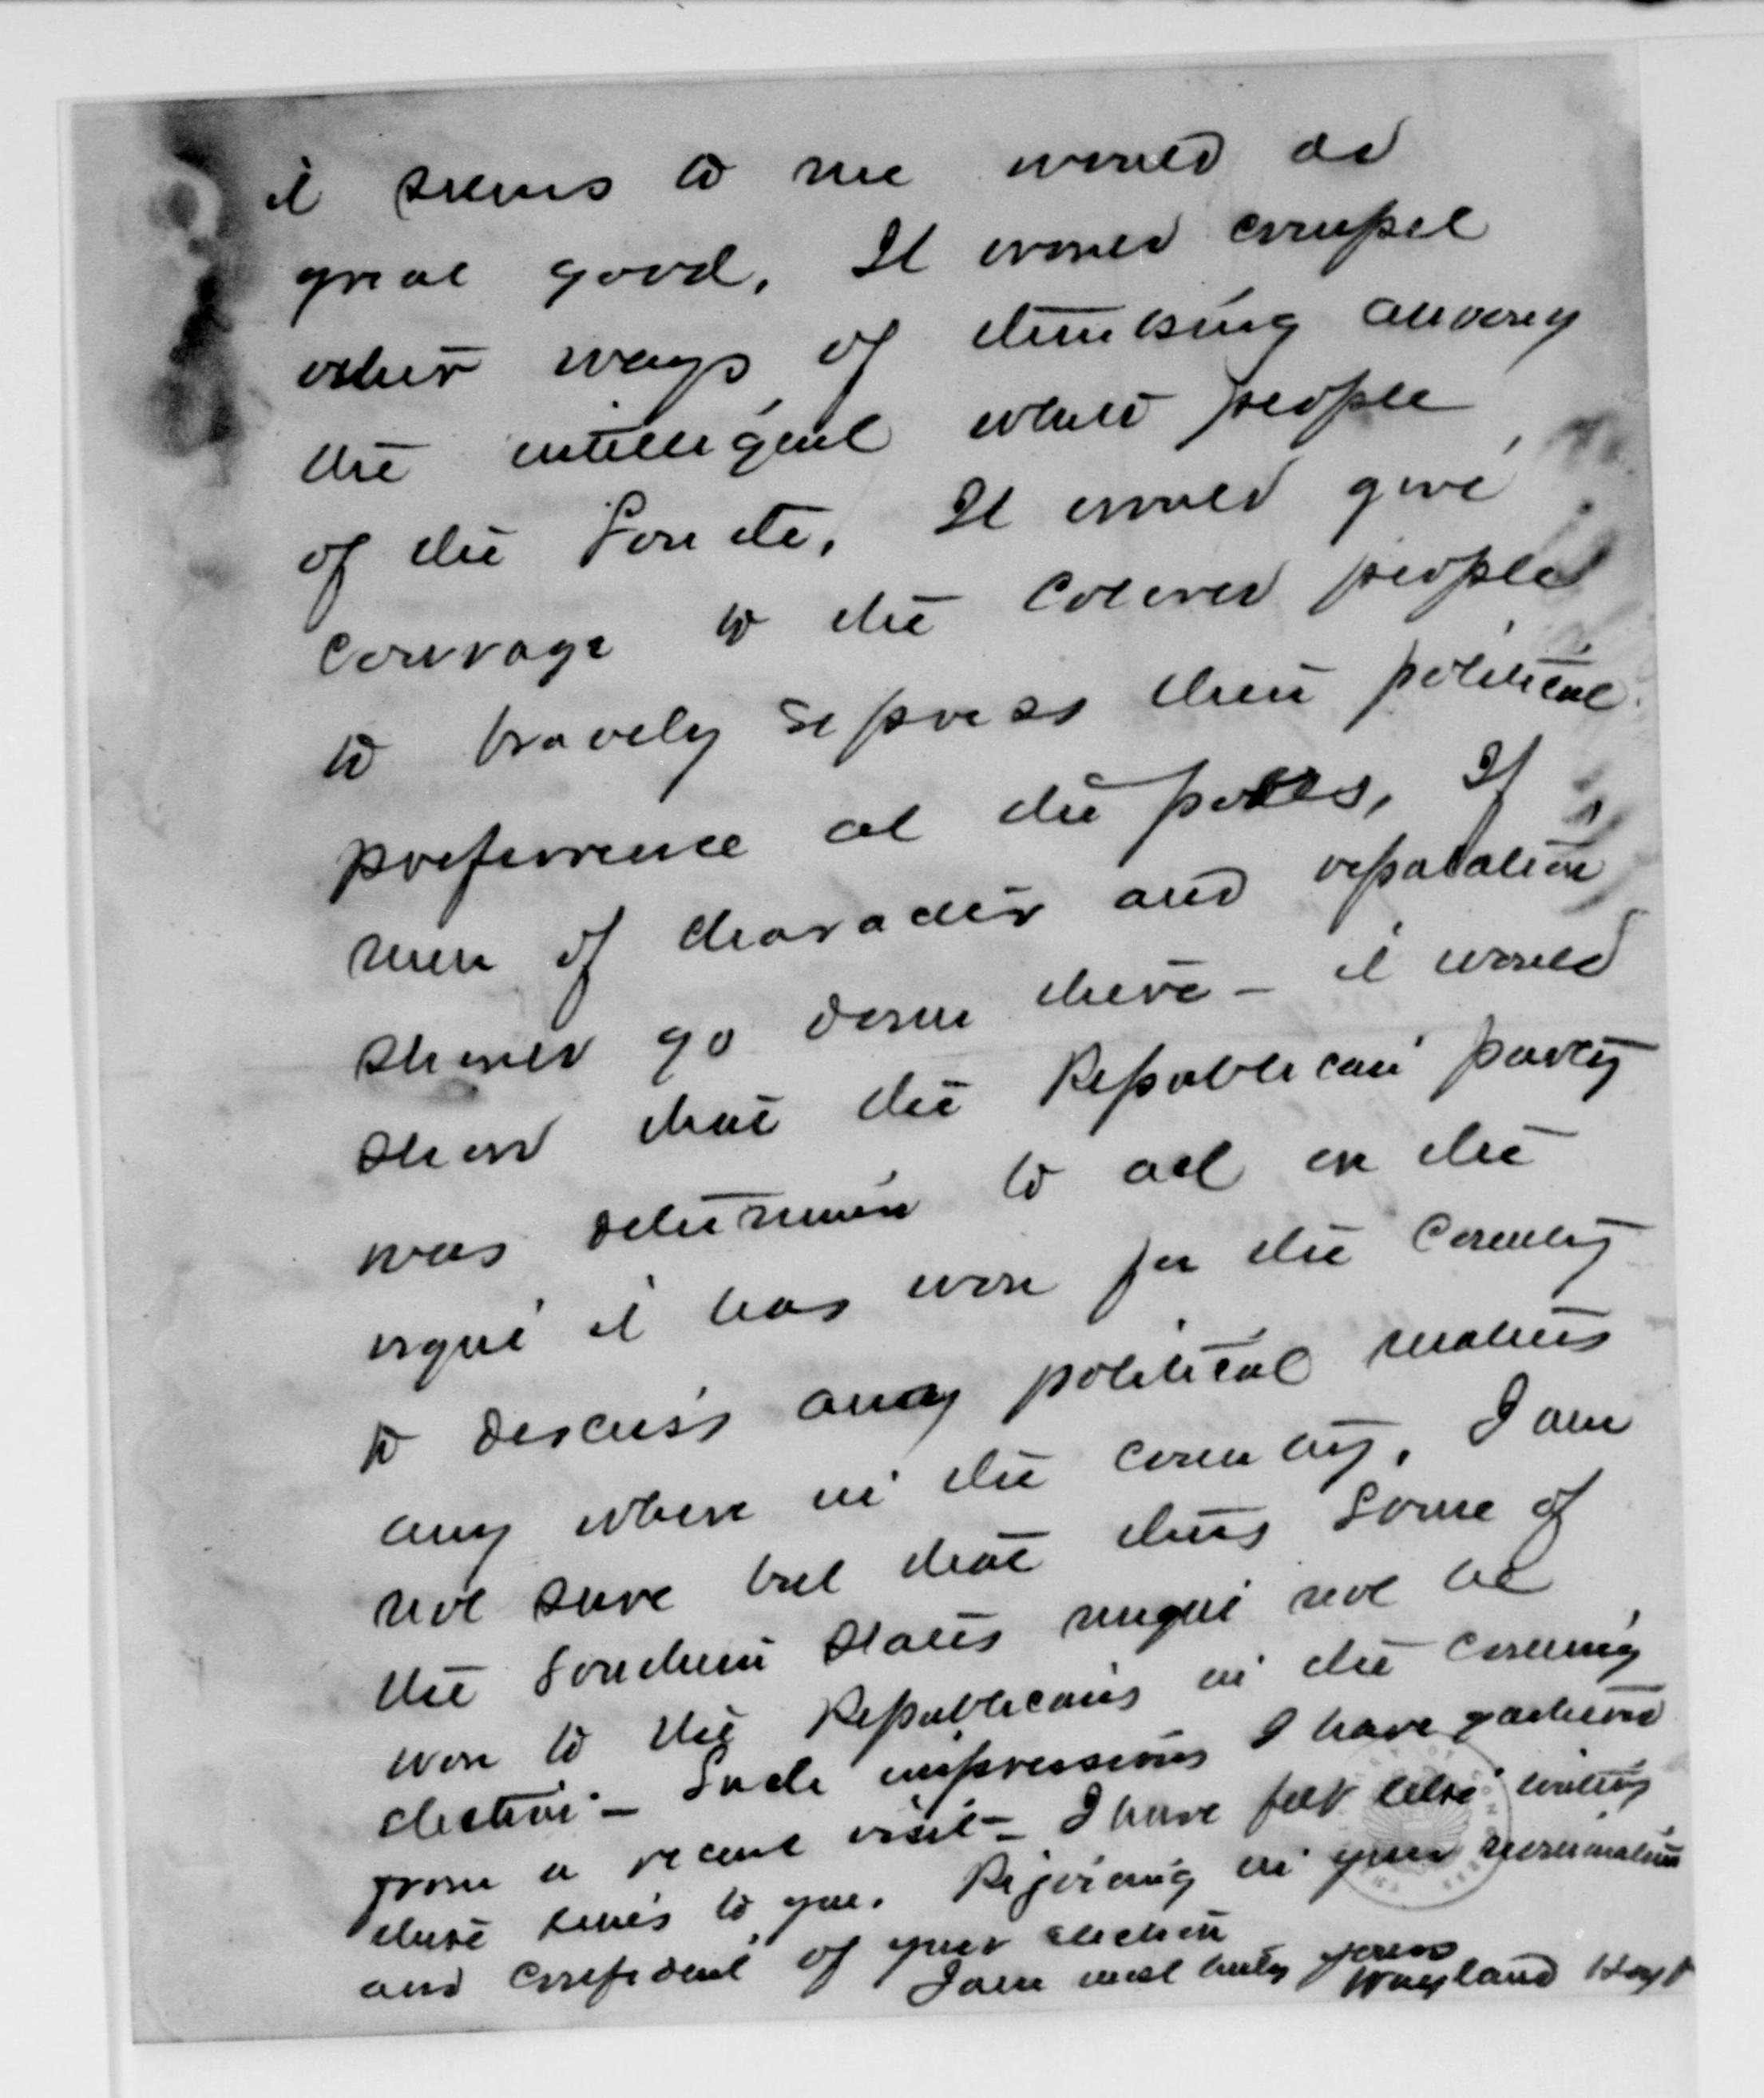 it seems to me would do
great good. It would compel
other ways of thinking among
the intelligent white people
of the South. It would give
courage to the colored people
to bravely express their political
preferrence at the polls. If
men of character and reputation
should go down there - it would
show that the Republican party
was determin to act on the
right it has won for the country
to discuss any political matters
any where in the country. I am
not sure but that thus some of
the Southern States might not be
won to the Republicans in the coming
election - Such impressions I have gathered
from a recent visit - I have felt like writing
these lines to you. Rejoicing in your nomination
and confident of your election
I am most truly yours
Wayland Hoyt